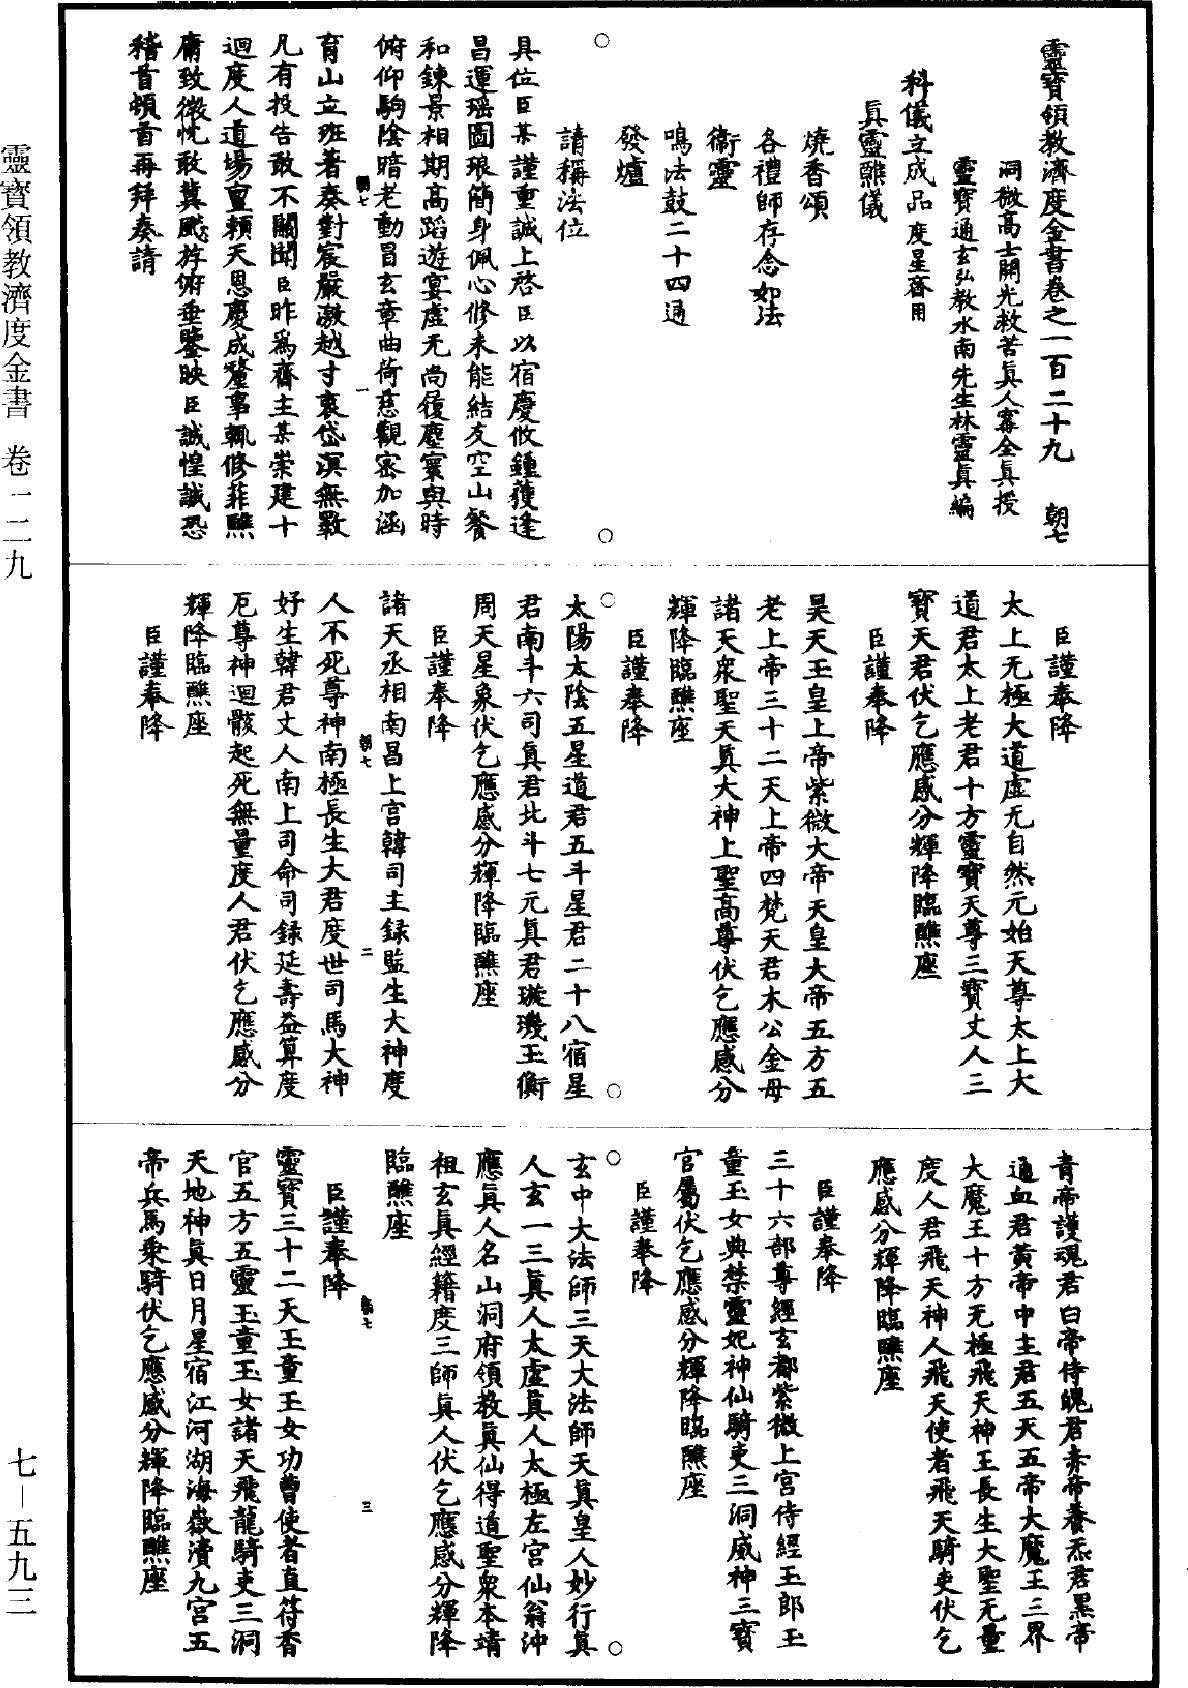 靈寶領教濟度金書 卷一二九
七—五九三
靈寶領教濟度金書卷之一百二十九 朝七
洞微高士開光救苦真人寗全真授
靈寶通玄弘教水南先生林靈真編
科儀立成品 度星齋用
真靈醮儀
燒香頌
各禮師存念如法
衛靈
鳴法鼓二十四通
發爐
請稱法位
具位臣某謹重誠上啓臣以宿慶攸鍾獲逢
昌運瑶圖琅簡身佩心修未能結友空山餐
和鍊景相期高蹈遊宴虛无尚履塵寰與時
俯仰駒陰暗老動冒玄章曲荷慈觀密加涵
朝七 一
育山立班著奏對宸嚴激越寸衷岱溟無斁
凡有投告敢不關聞臣昨爲齋主某崇建十
迴度人道場亶賴天恩慶成釐事輒修菲醮
庸致微忱敢冀飈斿俯垂鑒映臣誠惶誠恐
稽首頓首再拜奏請
臣謹奉降
太上无極大道虛无自然元始天尊太上大
道君太上老君十方靈寶天尊三寶丈人三
寶天君伏乞應感分輝降臨醮座
臣謹奉降
昊天玉皇上帝紫微大帝天皇大帝五方五
老上帝三十二天上帝四梵天君木公金母
諸天衆聖天真大神上聖高尊伏乞應感分
輝降臨醮座
臣謹奉降
太陽太陰五星道君五斗星君二十八宿星
君南斗六司真君北斗七元真君璇璣玉衡
周天星象伏乞應感分輝降臨醮座
臣謹奉降
諸天丞相南昌上宫韓司主録監生大神度
朝七 二
人不死尊神南極長生大君度世司馬大神
好生韓君丈人南上司命司録延壽益算度
厄尊神迴骸起死無量度人君伏乞應感分
輝降臨醮座
臣謹奉降
青帝護魂君白帝侍魄君赤帝養炁君黑帝
通血君黃帝中主君五天五帝大魔王三界
大魔王十方无極飛天神王長生大聖无量
度人君飛天神人飛天使者飛天騎吏伏乞
應感分輝降臨醮座
臣謹奉降
三十六部尊經玄都紫微上宫侍經玉郎玉
童玉女典禁靈妃神仙騎吏三洞威神三寶
官屬伏乞應感分輝降臨醮座
臣謹奉降
玄中大法師三天大法師天真皇人妙行真
人玄一三真人太虛真人太極左宫仙翁沖
應真人名山洞府領教真仙得道聖衆本靖
祖玄真經籍度三師真人伏乞應感分輝降
臨醮座
臣謹奉降
朝七 三
靈寶三十二天玉童玉女功曹使者直符香
官五方五靈玉童玉女諸天飛龍騎吏三洞
天地神真日月星宿江河湖海嶽瀆九宫五
帝兵馬乘騎伏乞應感分輝降臨醮座